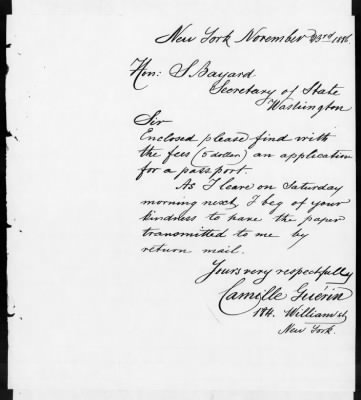 New York November 23rd 1886.
Hon: S Bayard
Secretary of State
Washington
Sir
Enclosed please find with
the fees (5 dollar) an application
for a passport.
As I leave on Saturday
morning next, I beg of your
kindness to have the paper
transmitted to me by
return mail.
Yours very respectfully
Camille Guérin
184. William st,
New York.